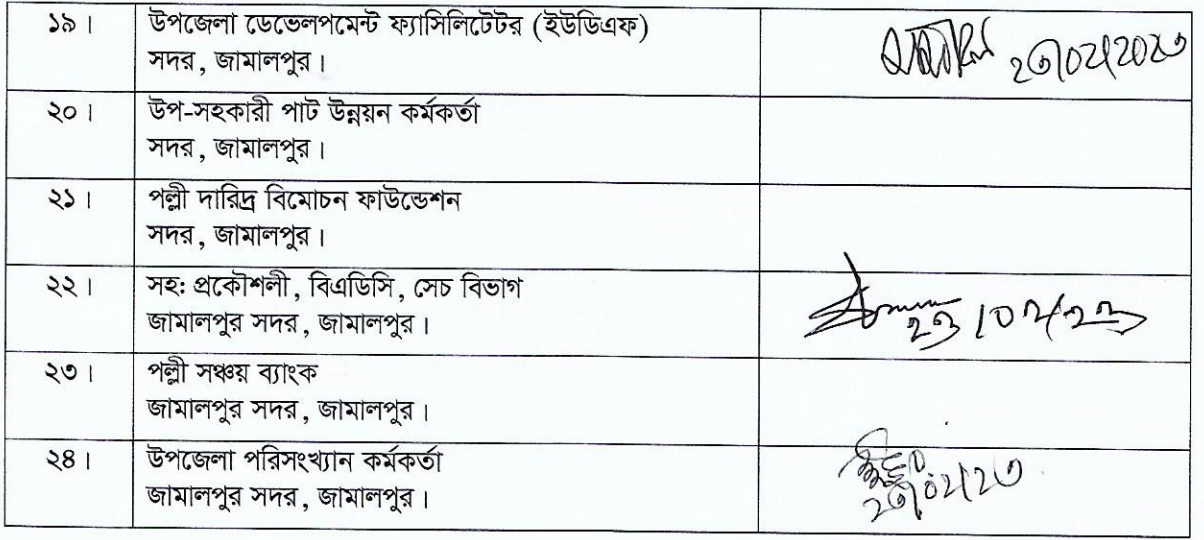 ১৯। উপজেলা ডেভেলপমেন্ট ফ্যাসিলিটেটর (ইউডিএফ)
সদর, জামালপুর।
২৩/০২/২০২৩
২০। উপ-সহকারী পাট উন্নয়ন কর্মকর্তা
সদর, জামালপুর।
২১। পল্লী দারিদ্র বিমোচন ফাউন্ডেশন
সদর, জামালপুর।
২২। সহঃ প্রকৌশলী, বিএডিসি, সেচ বিভাগ
জামালপুর সদর, জামালপুর।
২৩/০২/২৩
২৩। পল্লী সঞ্চয় ব্যাংক
জামালপুর সদর, জামালপুর।
২৪। উপজেলা পরিসংখ্যান কর্মকর্তা
জামালপুর সদর, জামালপুর।
২৩/০২/২৩